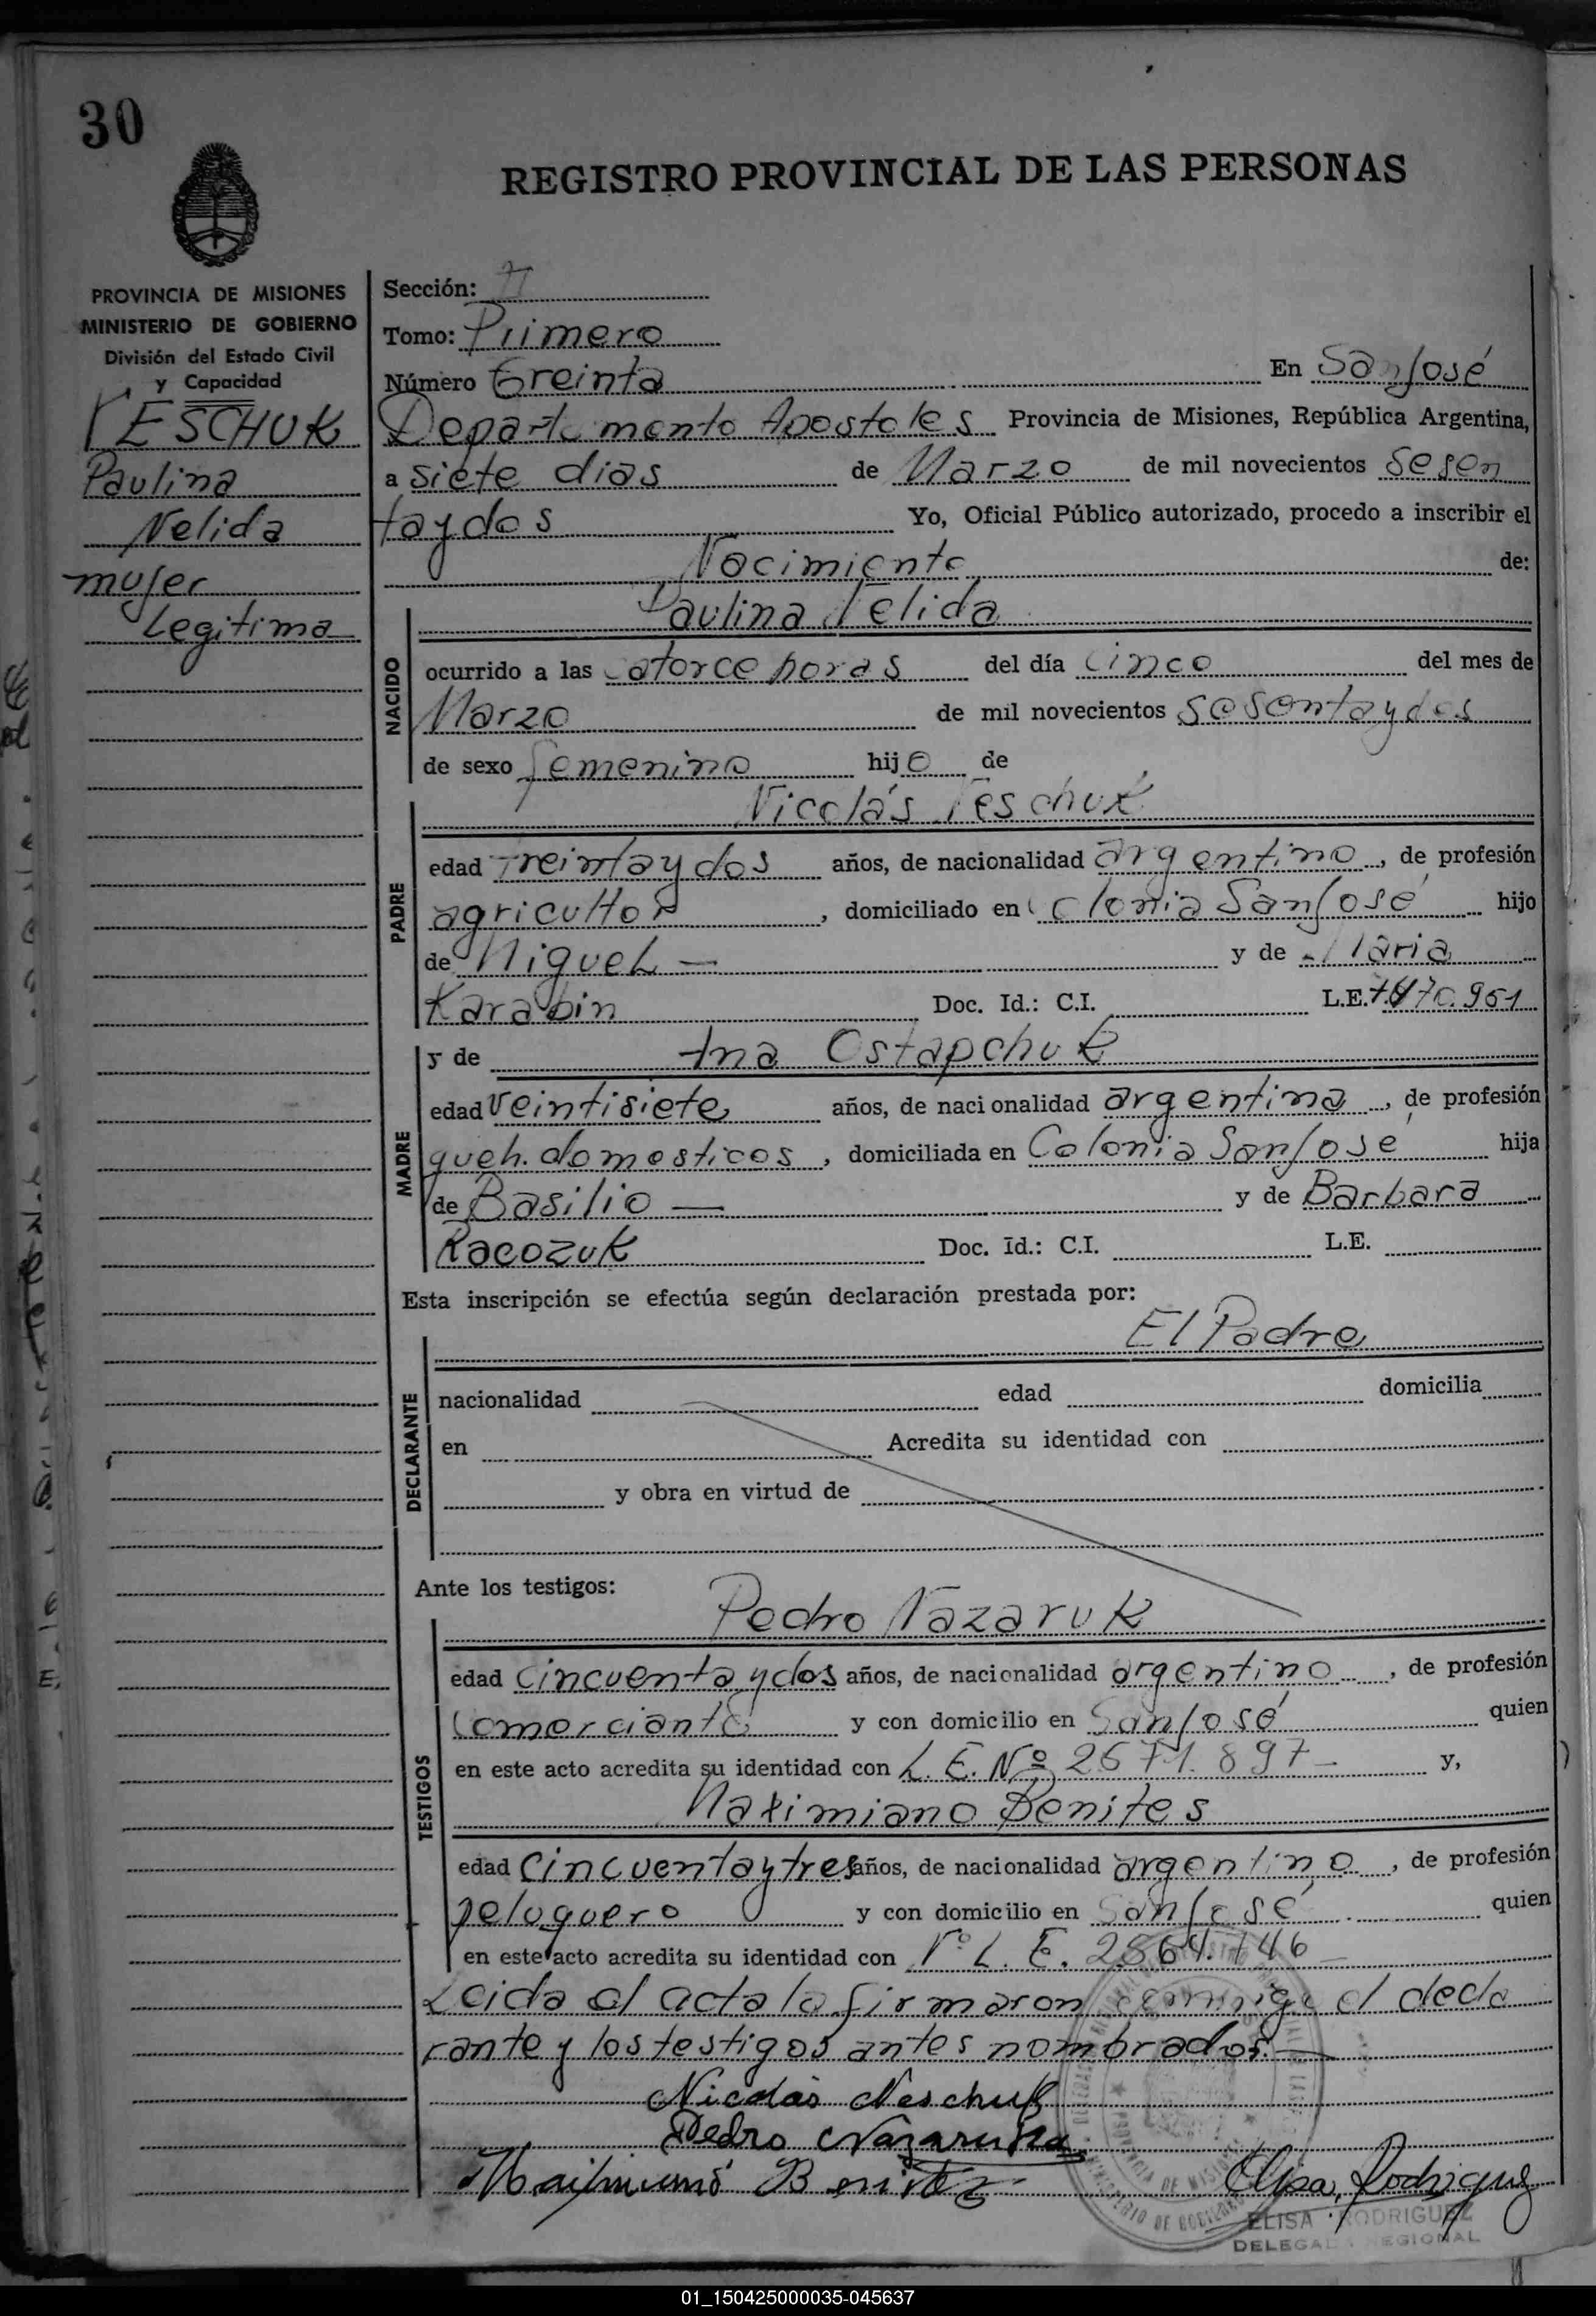 30
REGISTRO PROVINCIAL DE LAS PERSONAS
PROVINCIA DE MISIONES
MINISTERIO DE GOBIERNO
División del Estado Civil
y Capacidad
ESCHUK
Paulina
Nelida
mujer
Legitima
Sección:
Tomo: Primero
Número Treinta En San José
Departamento Apostoles Provincia de Misiones, República Argentina,
a siete dias de Marzo de mil novecientos sesen
taydos Yo, Oficial Público autorizado, procedo a inscribir el
Nacimiento de:
Paulina Nelida
NACIDO
ocurrido a las catorce horas del día cinco del mes de
Marzo de mil novecientos sesentaydos
de sexo femenino hijo de
Nicolás Teschuk
PADRE
edad Treintaydos años, de nacionalidad argentino, de profesión
agricultor, domiciliado en Colonia San José hijo
de Miguel — y de Maria
Karabin Doc. Id.: C.I. L.E. 7.470.951
MADRE
y de Ana Ostapchuk
edad veintisiete años, de nacionalidad argentina, de profesión
queh. domesticos, domiciliada en Colonia San José hija
de Basilio — y de Barbara
Racozuk Doc. Id.: C.I. L.E.
Esta inscripción se efectúa según declaración prestada por:
El Padre
DECLARANTE
nacionalidad edad domicilia
en Acredita su identidad con
y obra en virtud de
Ante los testigos:
Pedro Nazaruk
TESTIGOS
edad cincuentaydos años, de nacionalidad argentino, de profesión
comerciante y con domicilio en San José quien
en este acto acredita su identidad con L.E. Nº 2671.897 — y,
Maximiano Benites
edad cincuentaytres años, de nacionalidad argentino, de profesión
peluquero y con domicilio en San José quien
en este acto acredita su identidad con Nº L.E. 2.564.746 —
Leida el acta la firmaron conmigo el decla
rante y los testigos antes nombrados. —
Nicolás Neschuk
Pedro Nazaruka
Maximiano Benitez Elisa Rodriguez
ELISA RODRIGUEZ
DELEGADA REGIONAL
01_150425000035-045637